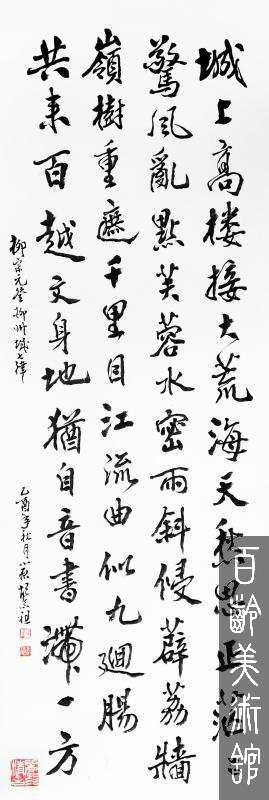 城上高楼接大荒海天愁思正茫〻
驚風亂點芙蓉水密雨斜侵薜荔牆
嶺樹重遮千里目江流曲似九廻腸
共来百越文身地猶自音書滯一方
柳宗元登柳州城七律
乙酉年秋月
百齡美術館